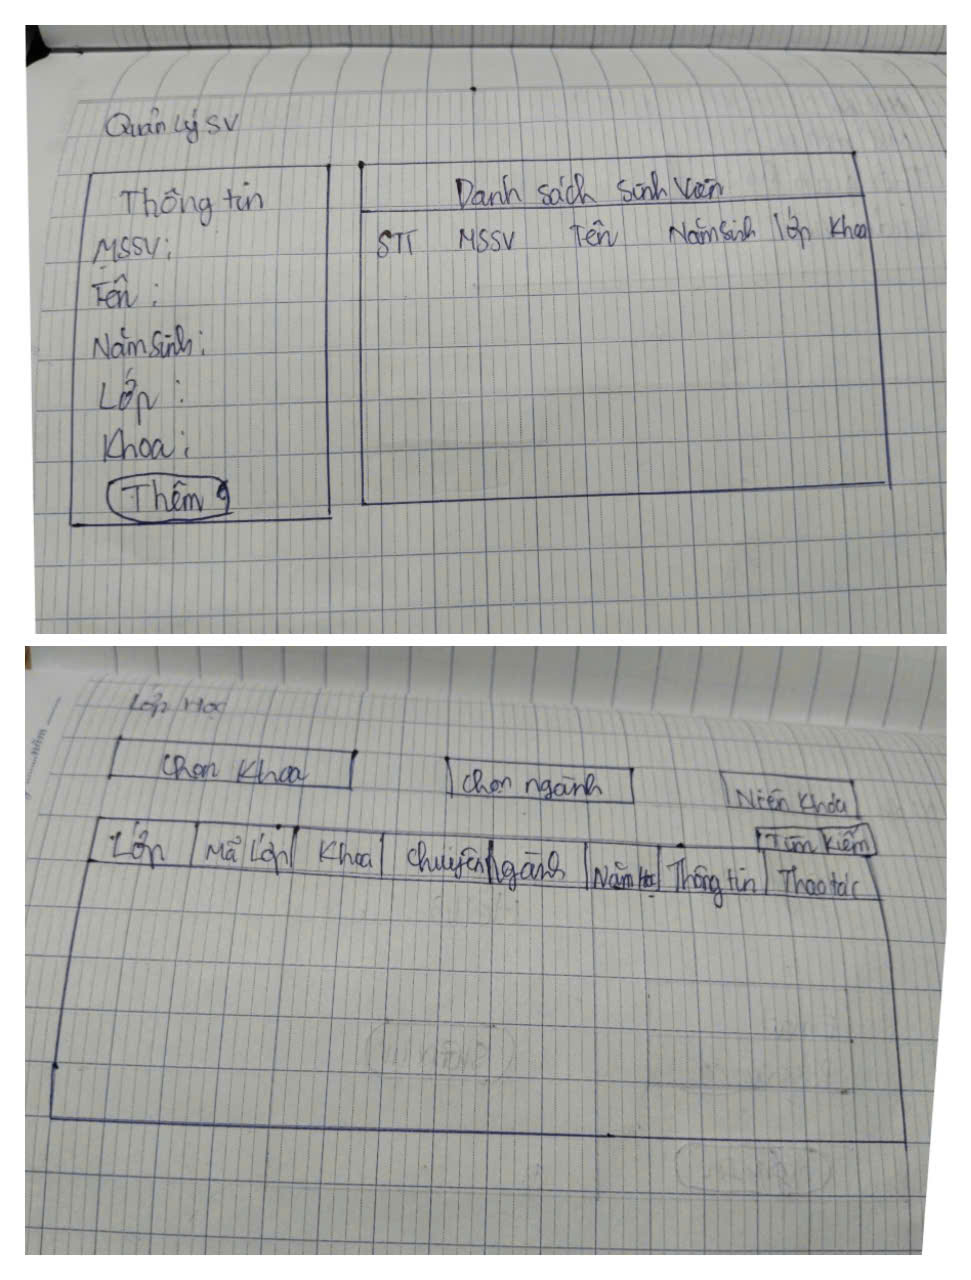 Quản lý SV
Thông tin
MSSV:
Tên :
Năm sinh:
Lớp :
Khoa:
Thêm
Danh sách sinh viên
STT MSSV Tên Năm sinh lớp Khoa
Lớp Học
Chọn Khoa
Chọn ngành
Niên Khóa
Tìm Kiếm
Lớp Mã Lớp Khoa Chuyên ngành Năm Học Thông tin Thao tác